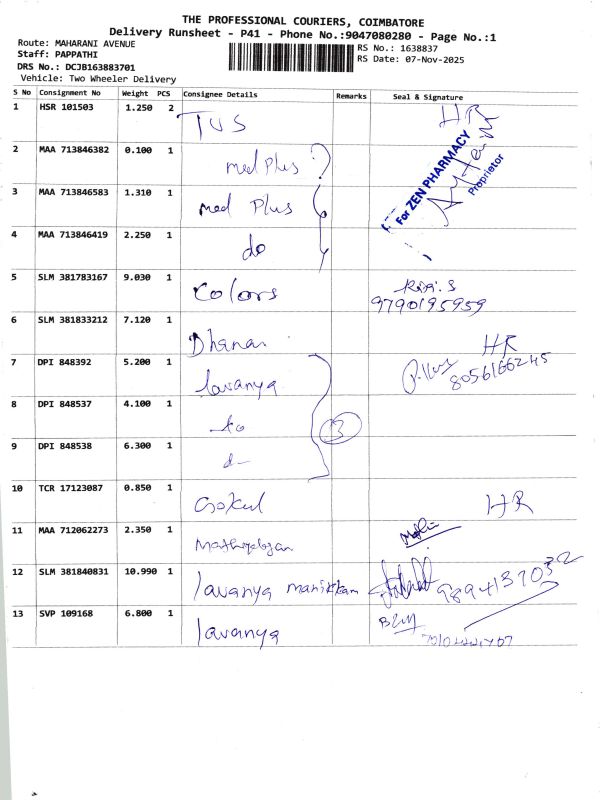 THE PROFESSIONAL COURIERS, COIMBATORE
Delivery Runsheet - P41 - Phone No.:9047080280 - Page No.:1
Route: MAHARANI AVENUE
Staff: PAPPATHI
DRS No.: DCJB163883701
Vehicle: Two Wheeler Delivery
RS No.: 1638837
RS Date: 07-Nov-2025
S No Consignment No Weight PCS Consignee Details Remarks Seal & Signature
1 HSR 101503 1.250 2 TVS HR
2 MAA 713846382 0.100 1 med Plus
For ZEN PHARMACY
Proprietor
3 MAA 713846583 1.310 1 med Plus
4 MAA 713846419 2.250 1 do
5 SLM 381783167 9.030 1 Colors
9790195959
6 SLM 381833212 7.120 1 Dhanan
7 DPI 848392 5.200 1 lavanya HR
8056166245
8 DPI 848537 4.100 1 do 3
9 DPI 848538 6.300 1 d-
10 TCR 17123087 0.850 1 Gokul HR
11 MAA 712062273 2.350 1
12 SLM 381840831 10.990 1 lavanya manikkam 9894137032
13 SVP 109168 6.800 1 lavanya